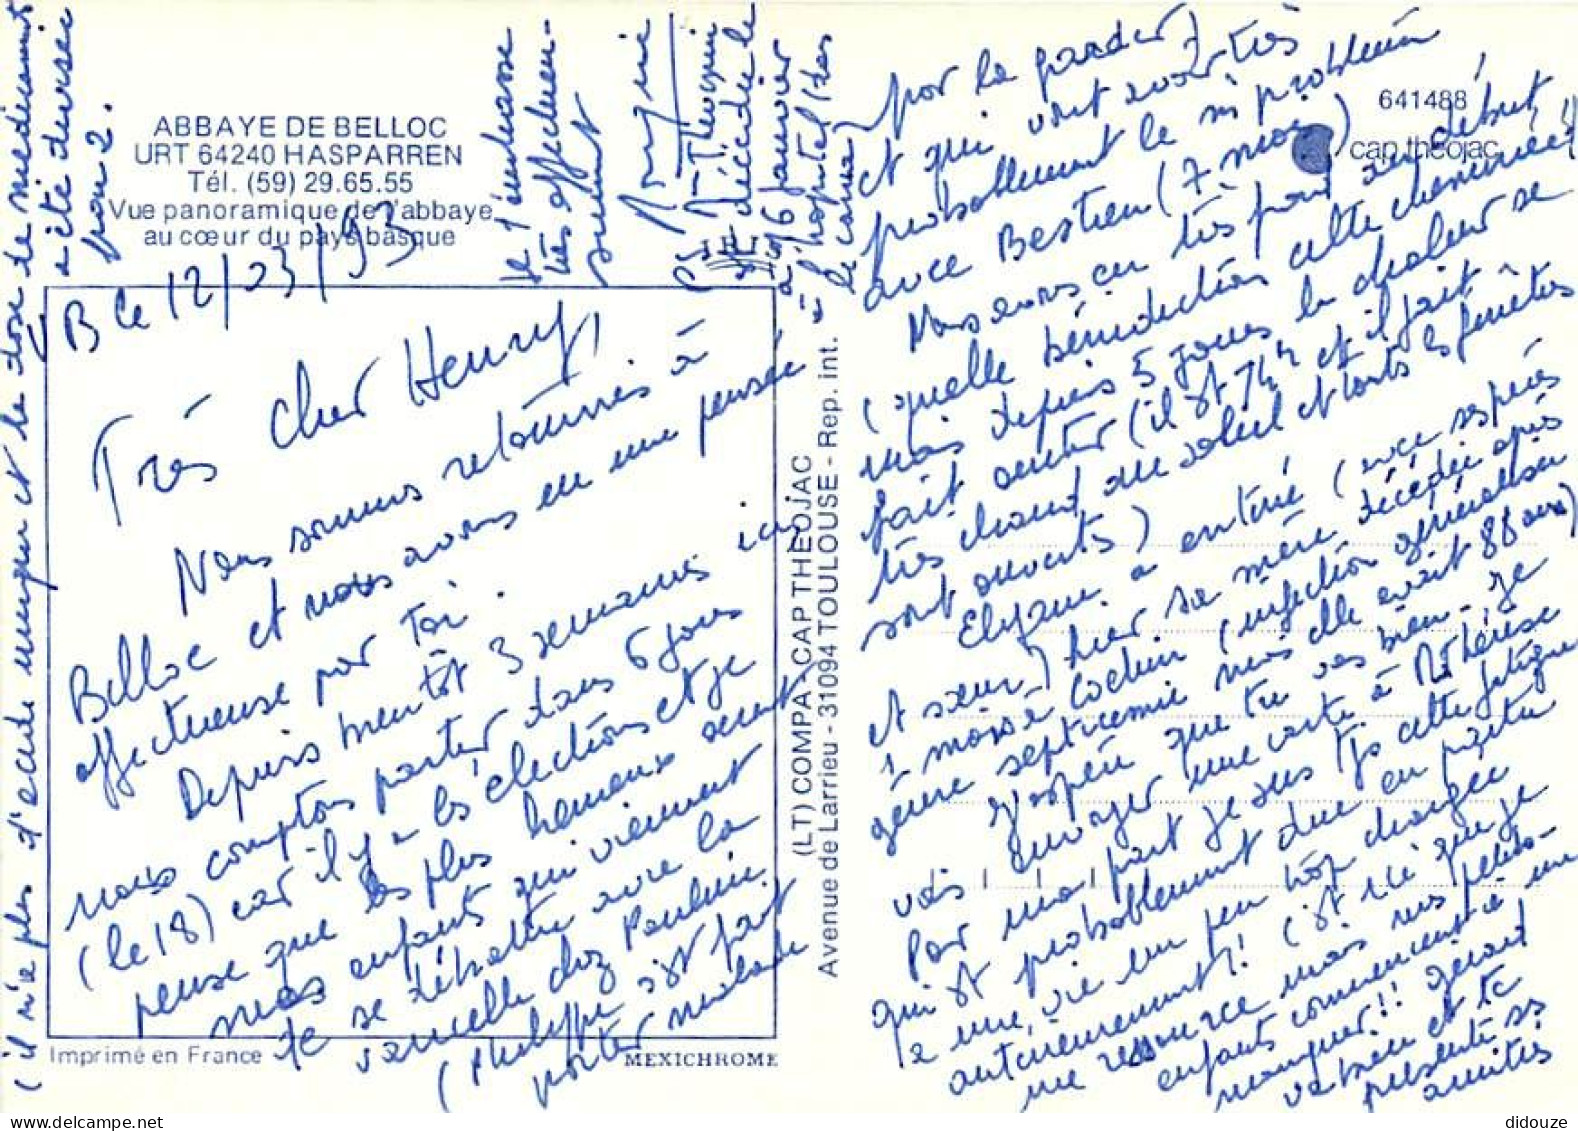 ABBAYE DE BELLOC
URT 64240 HASPARREN
Tél. (59) 29.65.55
Vue panoramique de l'abbaye
au cœur du pays basque
B le 12/03/93
Très cher Henry,
Nous sommes retournés à
Belloc et nous avons eu une pensée
affectueuse por toi.
Depuis bientôt 3 semaines ici
nous comptons partir dans 6 jours
(le 18) car il y a les élections et je
pense que les plus heureux seront
nos enfants qui viennent
de se débattre avec la
varicelle chez Pauline
(Philippe s'est fait
porter malade
por la garder)
et qui vont avoir très
probablement le m̂ problème
avec Bastien (7 mois)
Nous avons eu très froid au début,
(quelle bénédiction cette cheminée!)
mais depuis 5 jours la chaleur se
fait sentir (il est 7h et il fait
très chaud au soleil et toutes les fenêtres
sont ouverts)
a enterré (avec ses frères
et sœur) hier sa mère décédée après
1 mois à Cochin (infection généralisée
genre septicémie mais elle avait 88 ans)
J'espère que tu vas bien. Je
vais envoyer une carte à Mthérèse
Pour ma part je suis tjs cette fatigue
qui est probablement due en partie
a une vie un peu trop chargée
antérieurement! (c'est ici que je
me ressource mais nos petits-
enfants commencent à me
manquer!!
va bien et te
présente ses
amitiés
(il n'a plus d'ecude unique et la dose de médicament
a été divisée
par 2.
Je t'embrasse
très affectueu-
sement
PS
décédée le
16 janvier
à l'hopital (des
641488
cap théojac
(LT) COMPA - CAP THEOJAC
Avenue de Larrieu - 31094 TOULOUSE - Rep. int.
Imprimé en France
MEXICHROME
didouze